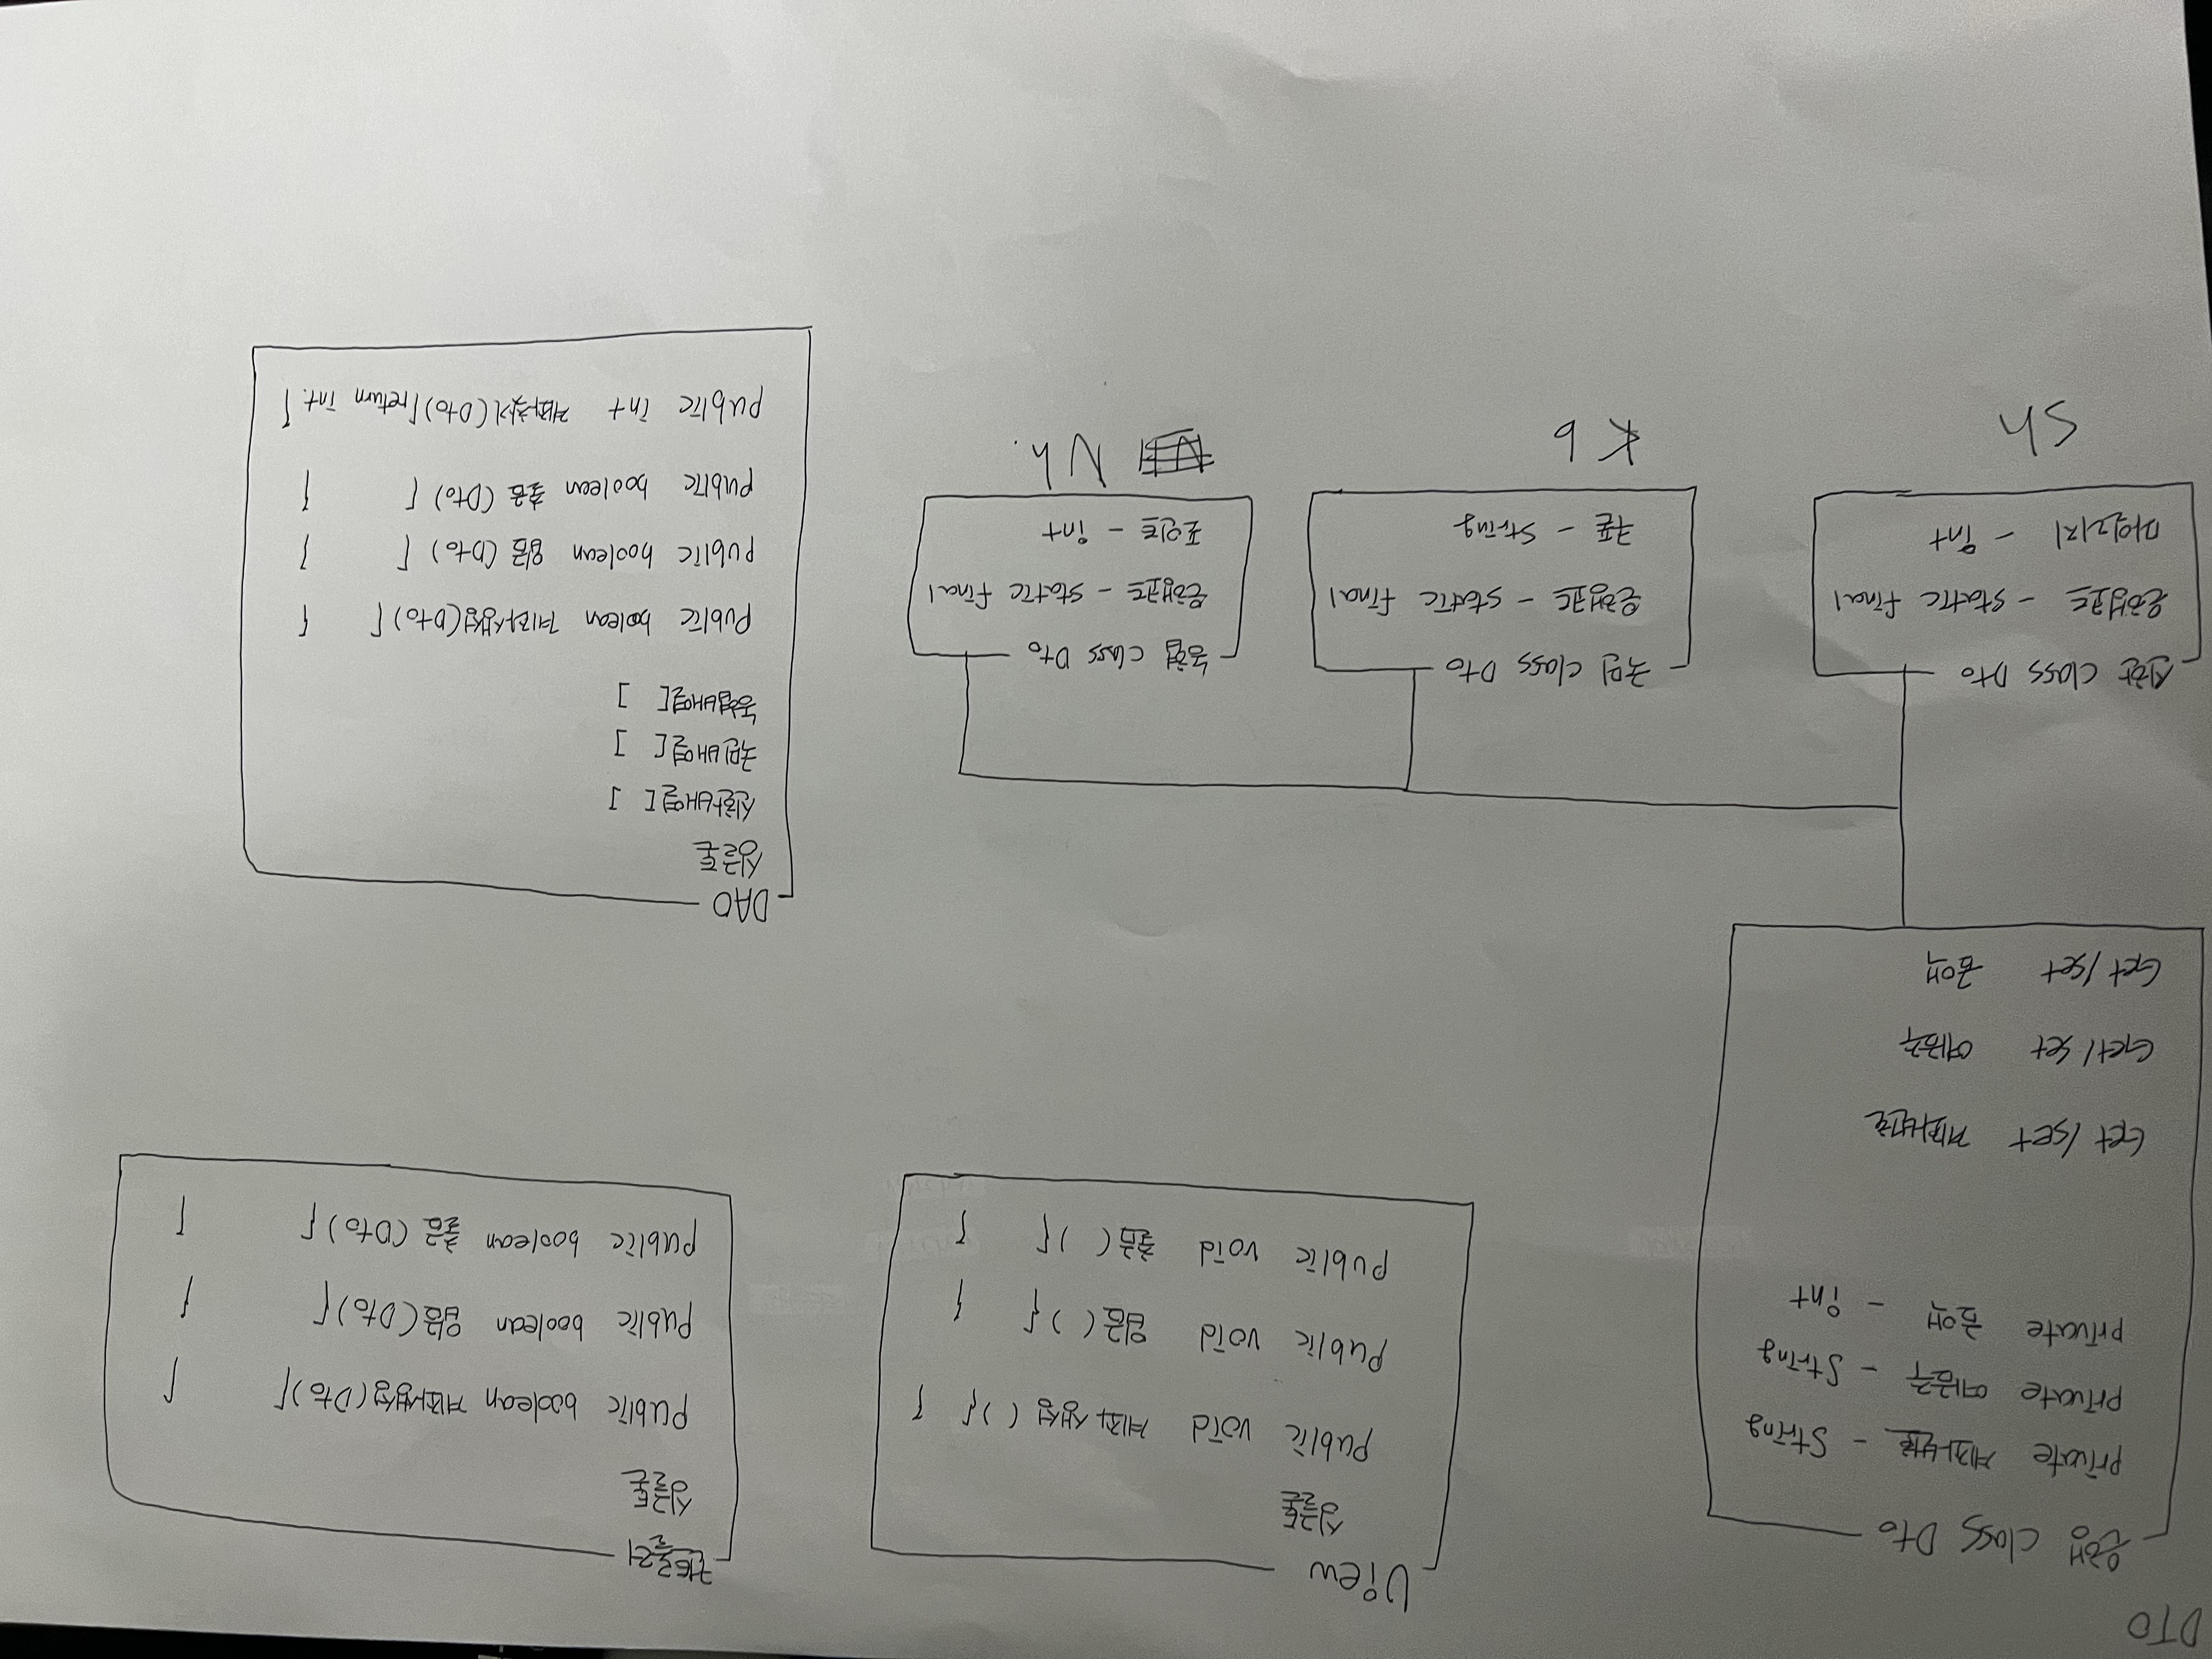 DTO
은행 class Dto
private 계좌번호 - String
private 예금주 - String
private 금액 - int
Get/set 계좌번호
Get/set 예금주
Get/set 금액
신한 class Dto
은행코드 - static final
마일리지 - int
Sh
국민 class Dto
은행코드 - static final
쿠폰 - String
Kb
농협 class Dto
은행코드 - static final
포인트 - int
Nh.
View
싱글톤
Public void 계좌생성 ( ) { }
Public void 입금 ( ) { }
Public void 출금 ( ) { }
컨트롤러
싱글톤
Public boolean 계좌생성(Dto) { }
Public boolean 입금(Dto) { }
Public boolean 출금(Dto) { }
DAO
싱글톤
신한배열[ ]
국민배열[ ]
농협배열[ ]
Public bolean 계좌생성(Dto) { }
Public boolean 입금(Dto) { }
Public boolean 출금(Dto) { }
Public int 계좌찾기(Dto) {return int.}